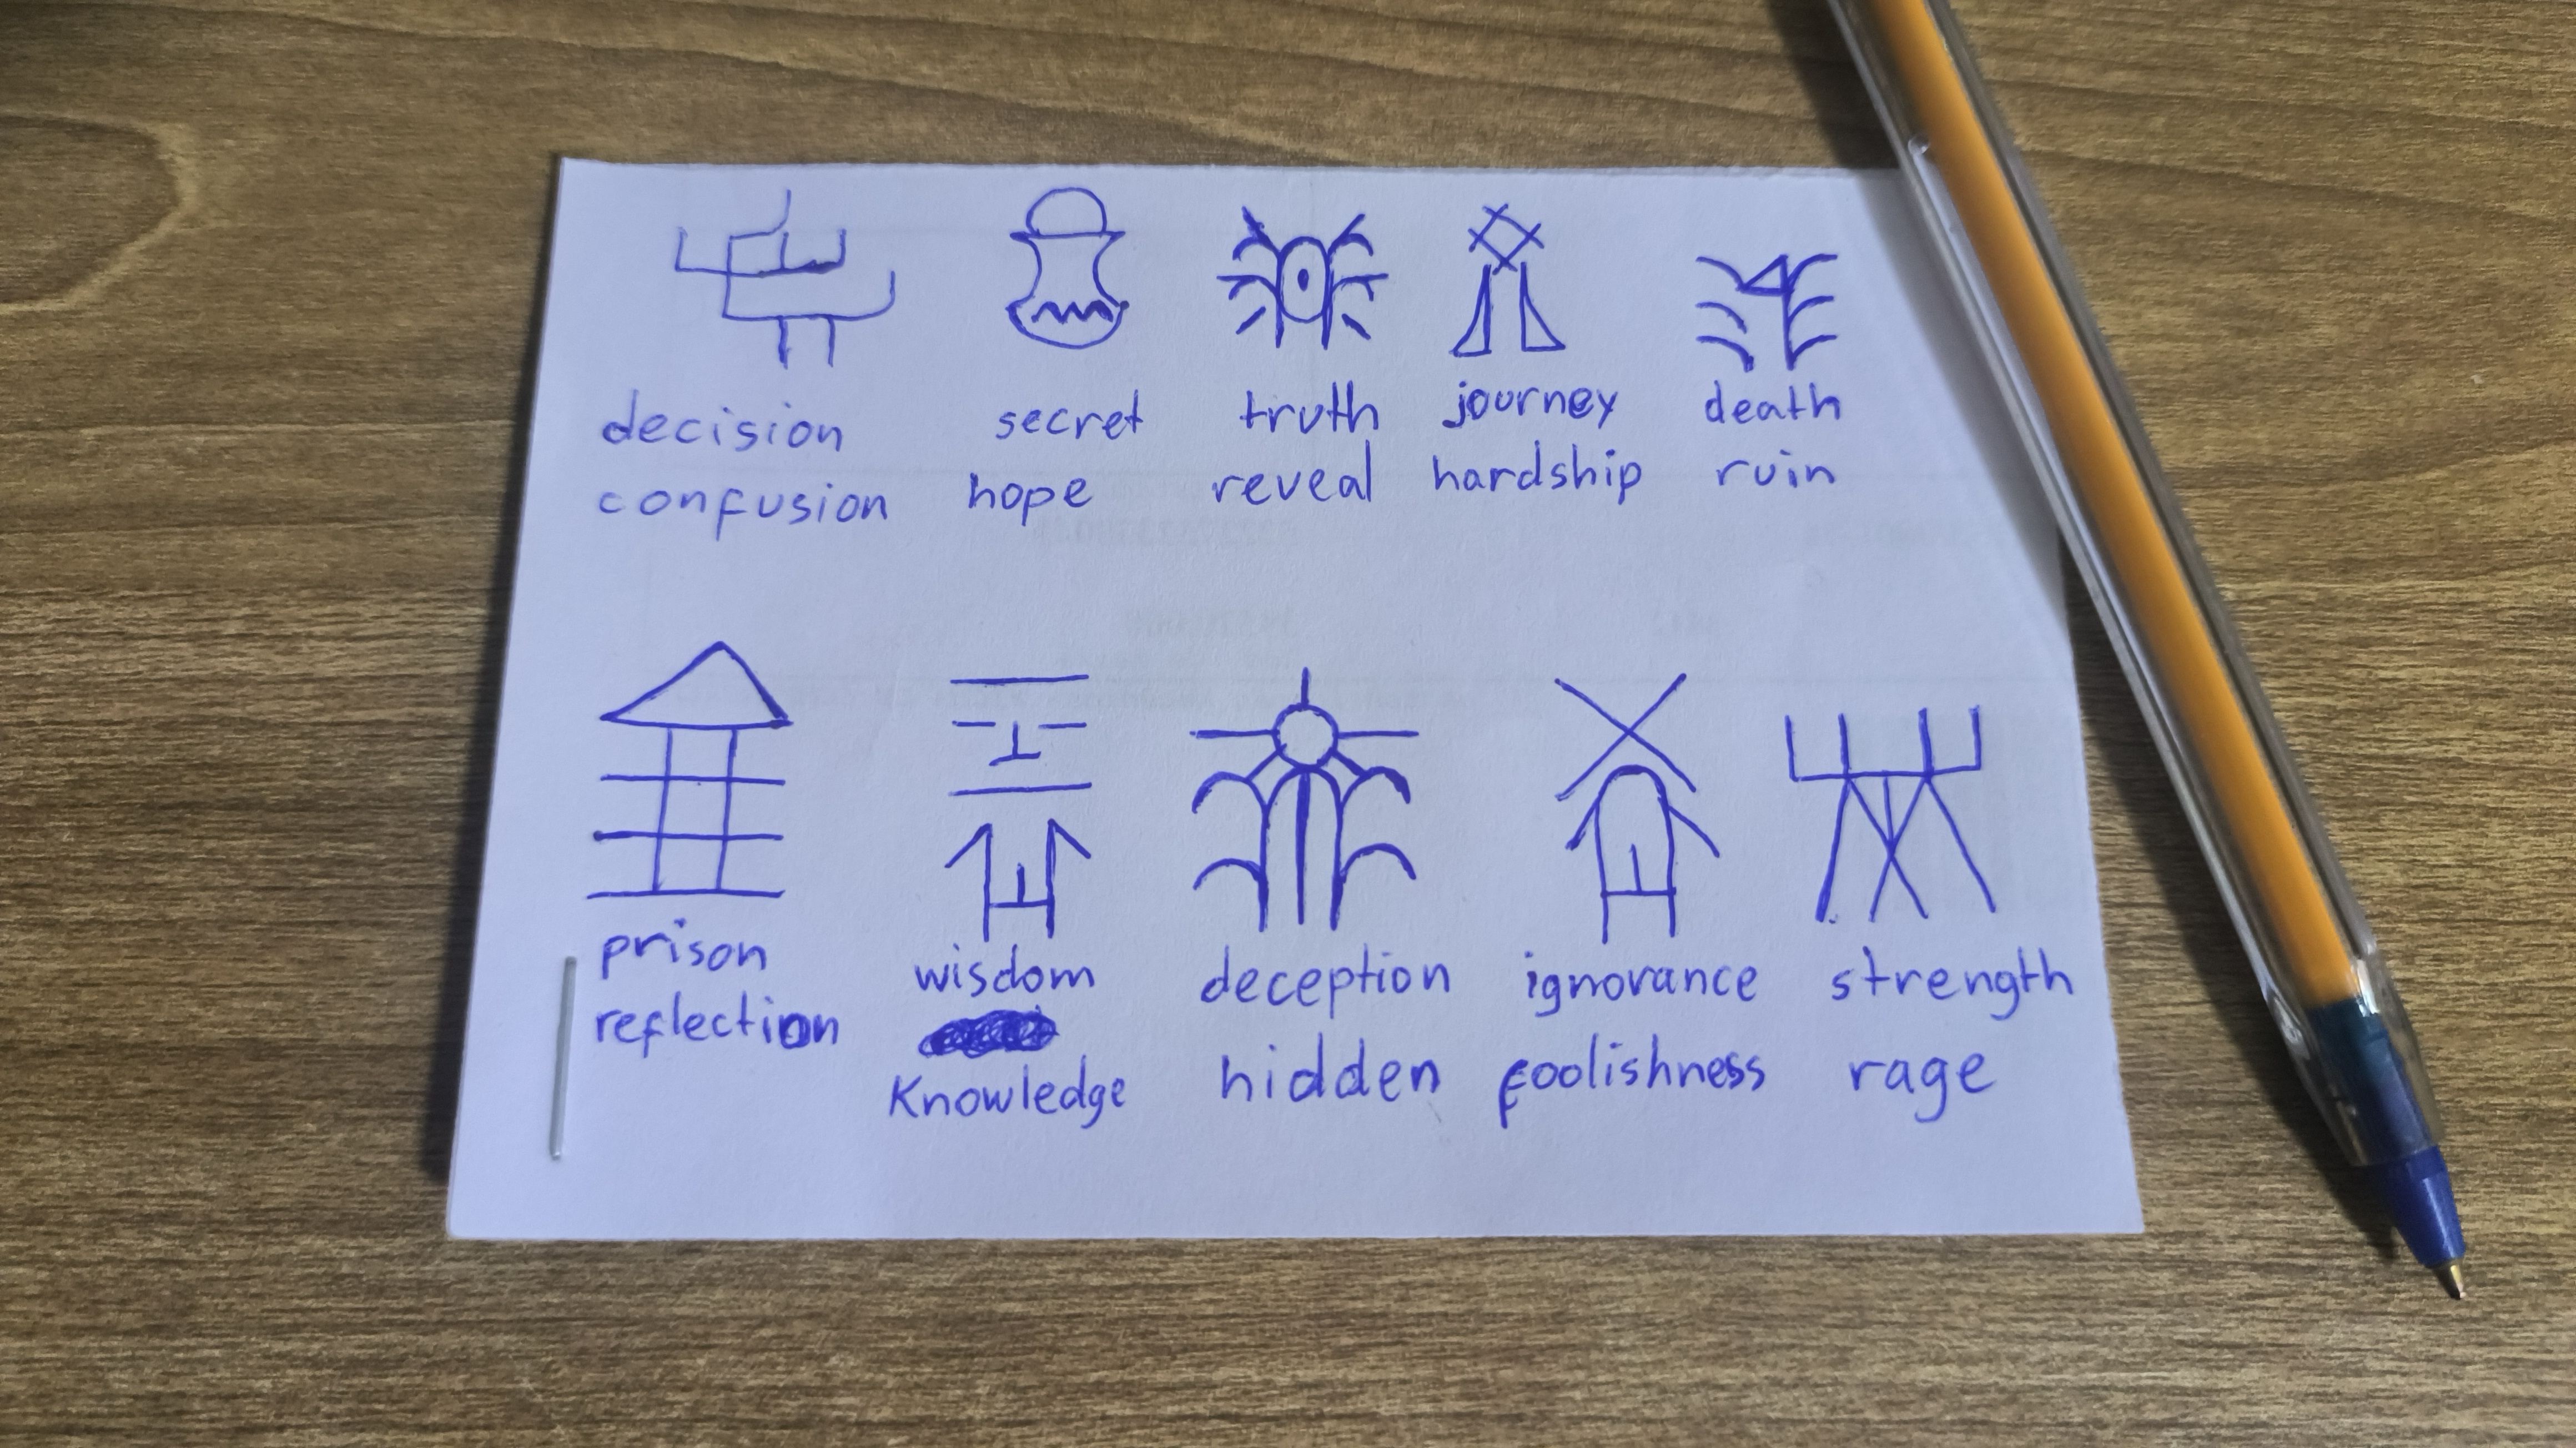 decision secret truth journey death
confusion hope reveal hardship ruin
prison wisdom deception ignorance strength
reflection
Knowledge hidden foolishness rage